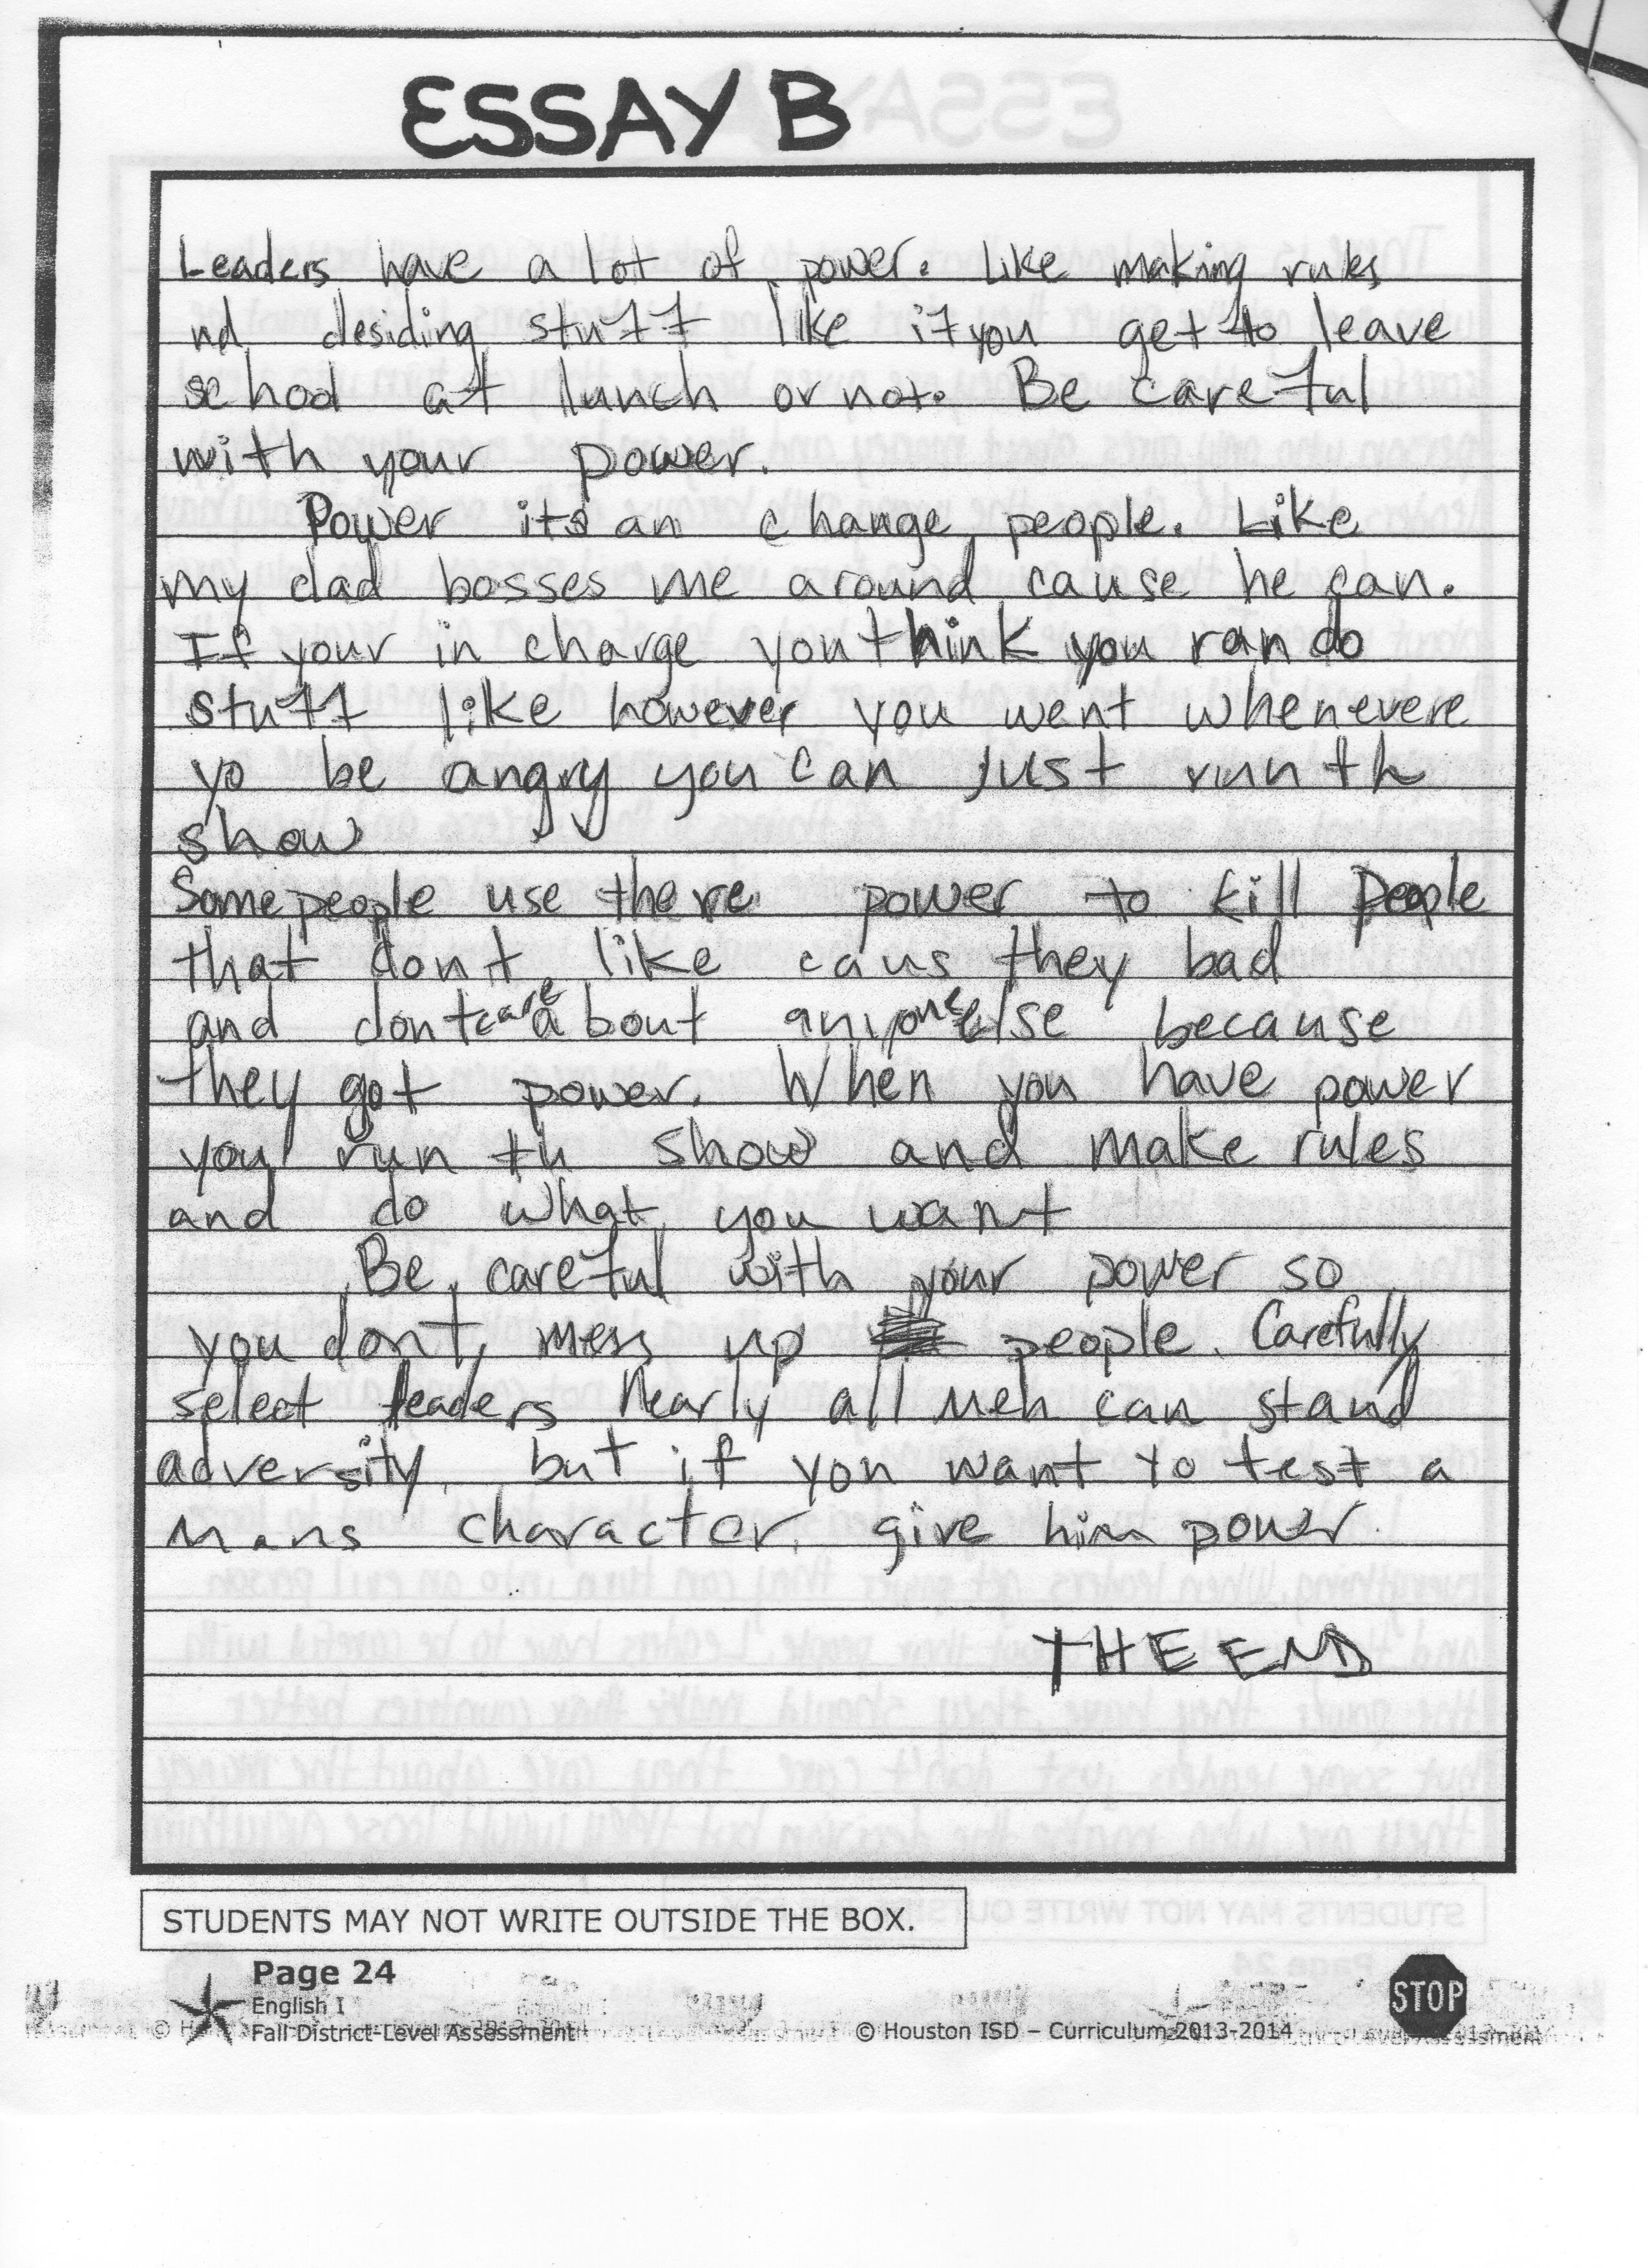 ESSAY B
Leaders have a lot of power. Like making rules
nd desiding stuff like if you get to leave
school at lunch or not. Be careful
with your power.
Power its an change people. Like
my dad bosses me around cause he can.
If your in charge you think you can do
stuff like however you went whenevere
yo be angry you can just run th
show
Some people use there power to kill people
that dont like caus they bad
and dont care about aniyone else because
they got power. When you have power
you run th show and make rules
and do what you want
Be careful with your power so
you dont mess up people. Carefully
select leaders Nearly all men can stand
adversity, but if you want to test a
mans character, give him power.
THE END
STUDENTS MAY NOT WRITE OUTSIDE THE BOX.
Page 24
English I
Fall District-Level Assessment
© Houston ISD – Curriculum 2013-2014
STOP